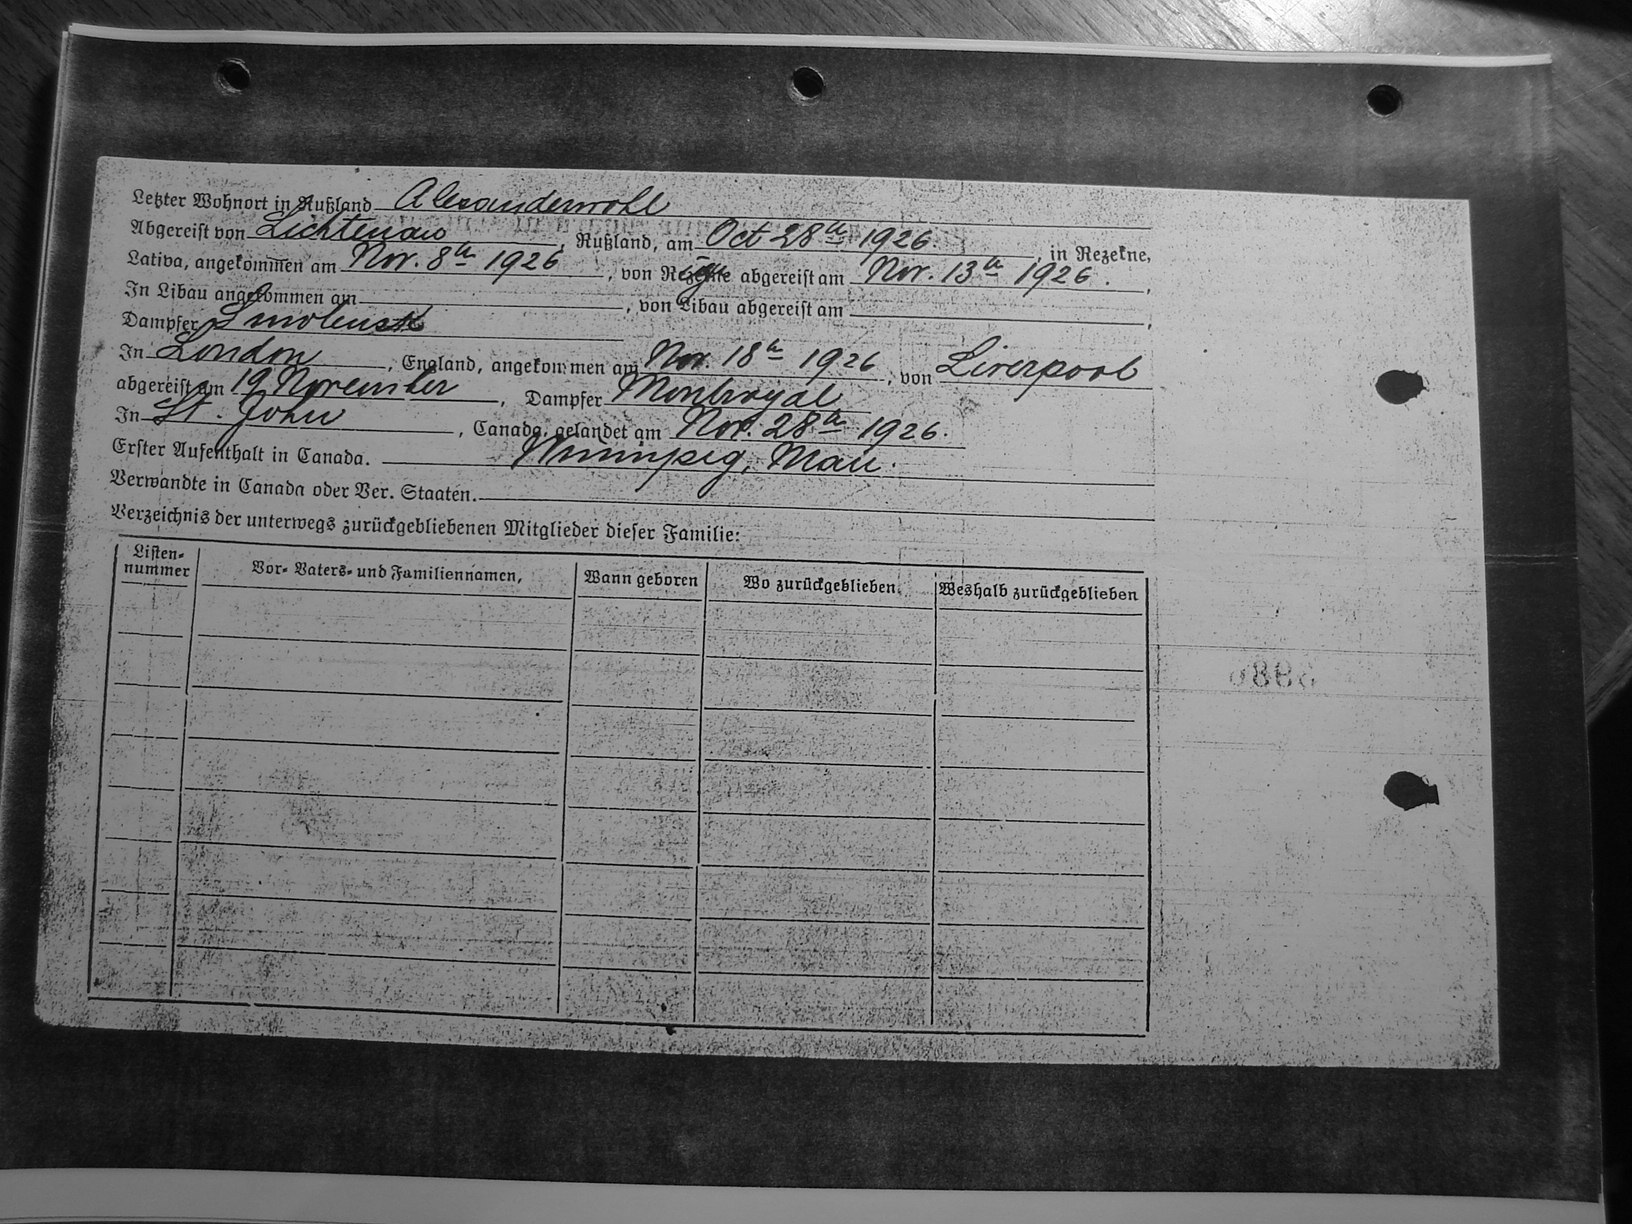 Letzter Wohnort in Rußland Alexanderwohl
Abgereist von Lichtenau, Rußland, am Oct 28th 1926. in Rezekne,
Lativa, angekommen am Nov. 8th 1926, von Riga abgereist am Nov. 13th 1926.,
In Libau angekommen am, von Libau abgereist am,
Dampfer Smolensk
In London, England, angekommen am Nov. 18th 1926, von Liverpool
abgereist am 19 November, Dampfer Montroyal
In St. John, Canada, gelandet am Nov. 28th 1926.
Erster Aufenthalt in Canada. Winnipeg, Man.
Verwandte in Canada oder Ver. Staaten.
Verzeichnis der unterwegs zurückgebliebenen Mitglieder dieser Familie:
Listen-nummer Vor- Vaters- und Familiennamen, Wann geboren Wo zurückgeblieben Weshalb zurückgeblieben